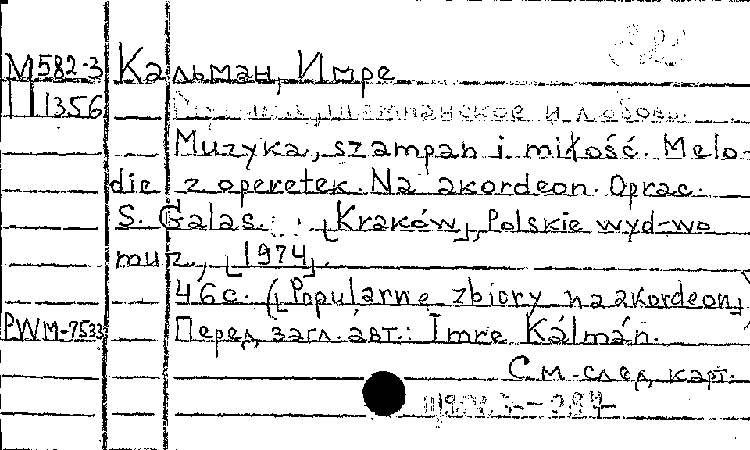 М 582-3 Кальман, Имре
П 1356 шампанское и любовь.
Muzyka, szampan i miłość. Melo-
die z operetek. Na akordeon. Oprac.
S. Galas. [Kraków], Polskie wyd-wo
muz., [1974].
46 с. ([Popularne zbiory na akordeon])
PWM-7533 Перед загл. авт.: Imre Kálmán.
См. след. карт.